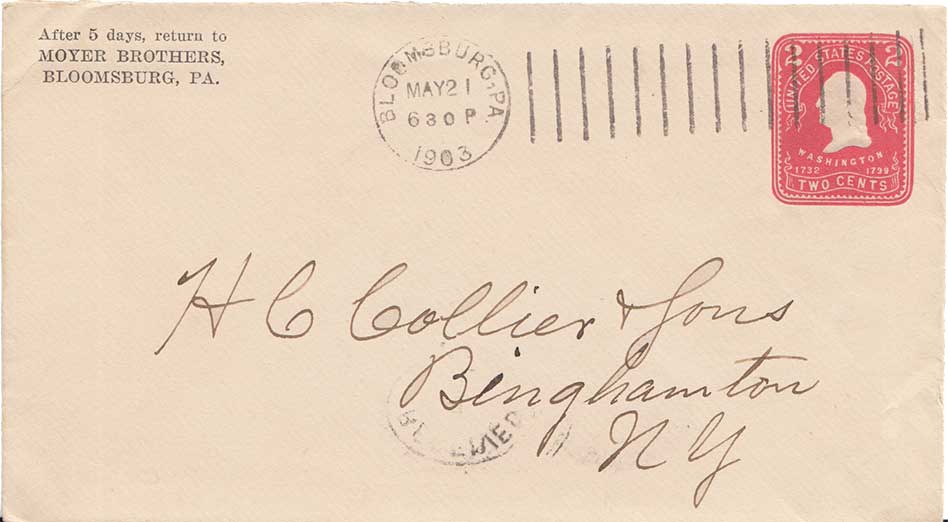 After 5 days, return to
MOYER BROTHERS,
BLOOMSBURG, PA.
BLOOMSBURG, PA.
MAY 21
630 P
1903
2 2
UNITED STATES POSTAGE
WASHINGTON
1732 1799
TWO CENTS
H C Collier & Sons
Binghamton
N Y